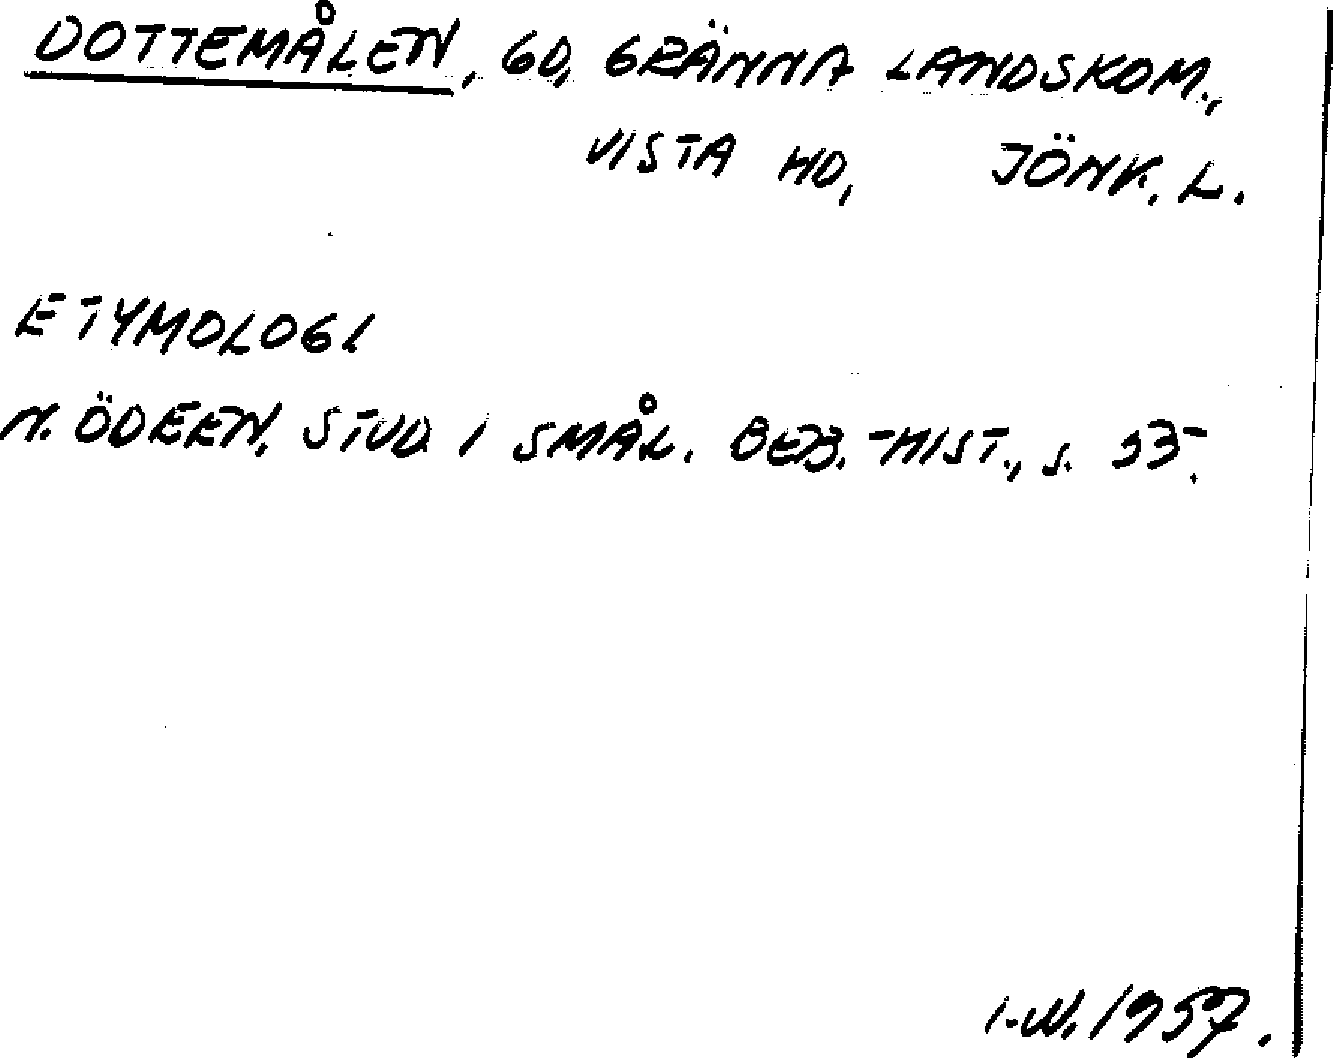 DOTTEMÅLEN, GD, GRÄNNA LANDSKOM.,
VISTA HD, JÖNK. L.
ETYMOLOGI
N. ÖDEEN, STUD. I SMÅL. BEB.-HIST., S.
I.N. 1957.